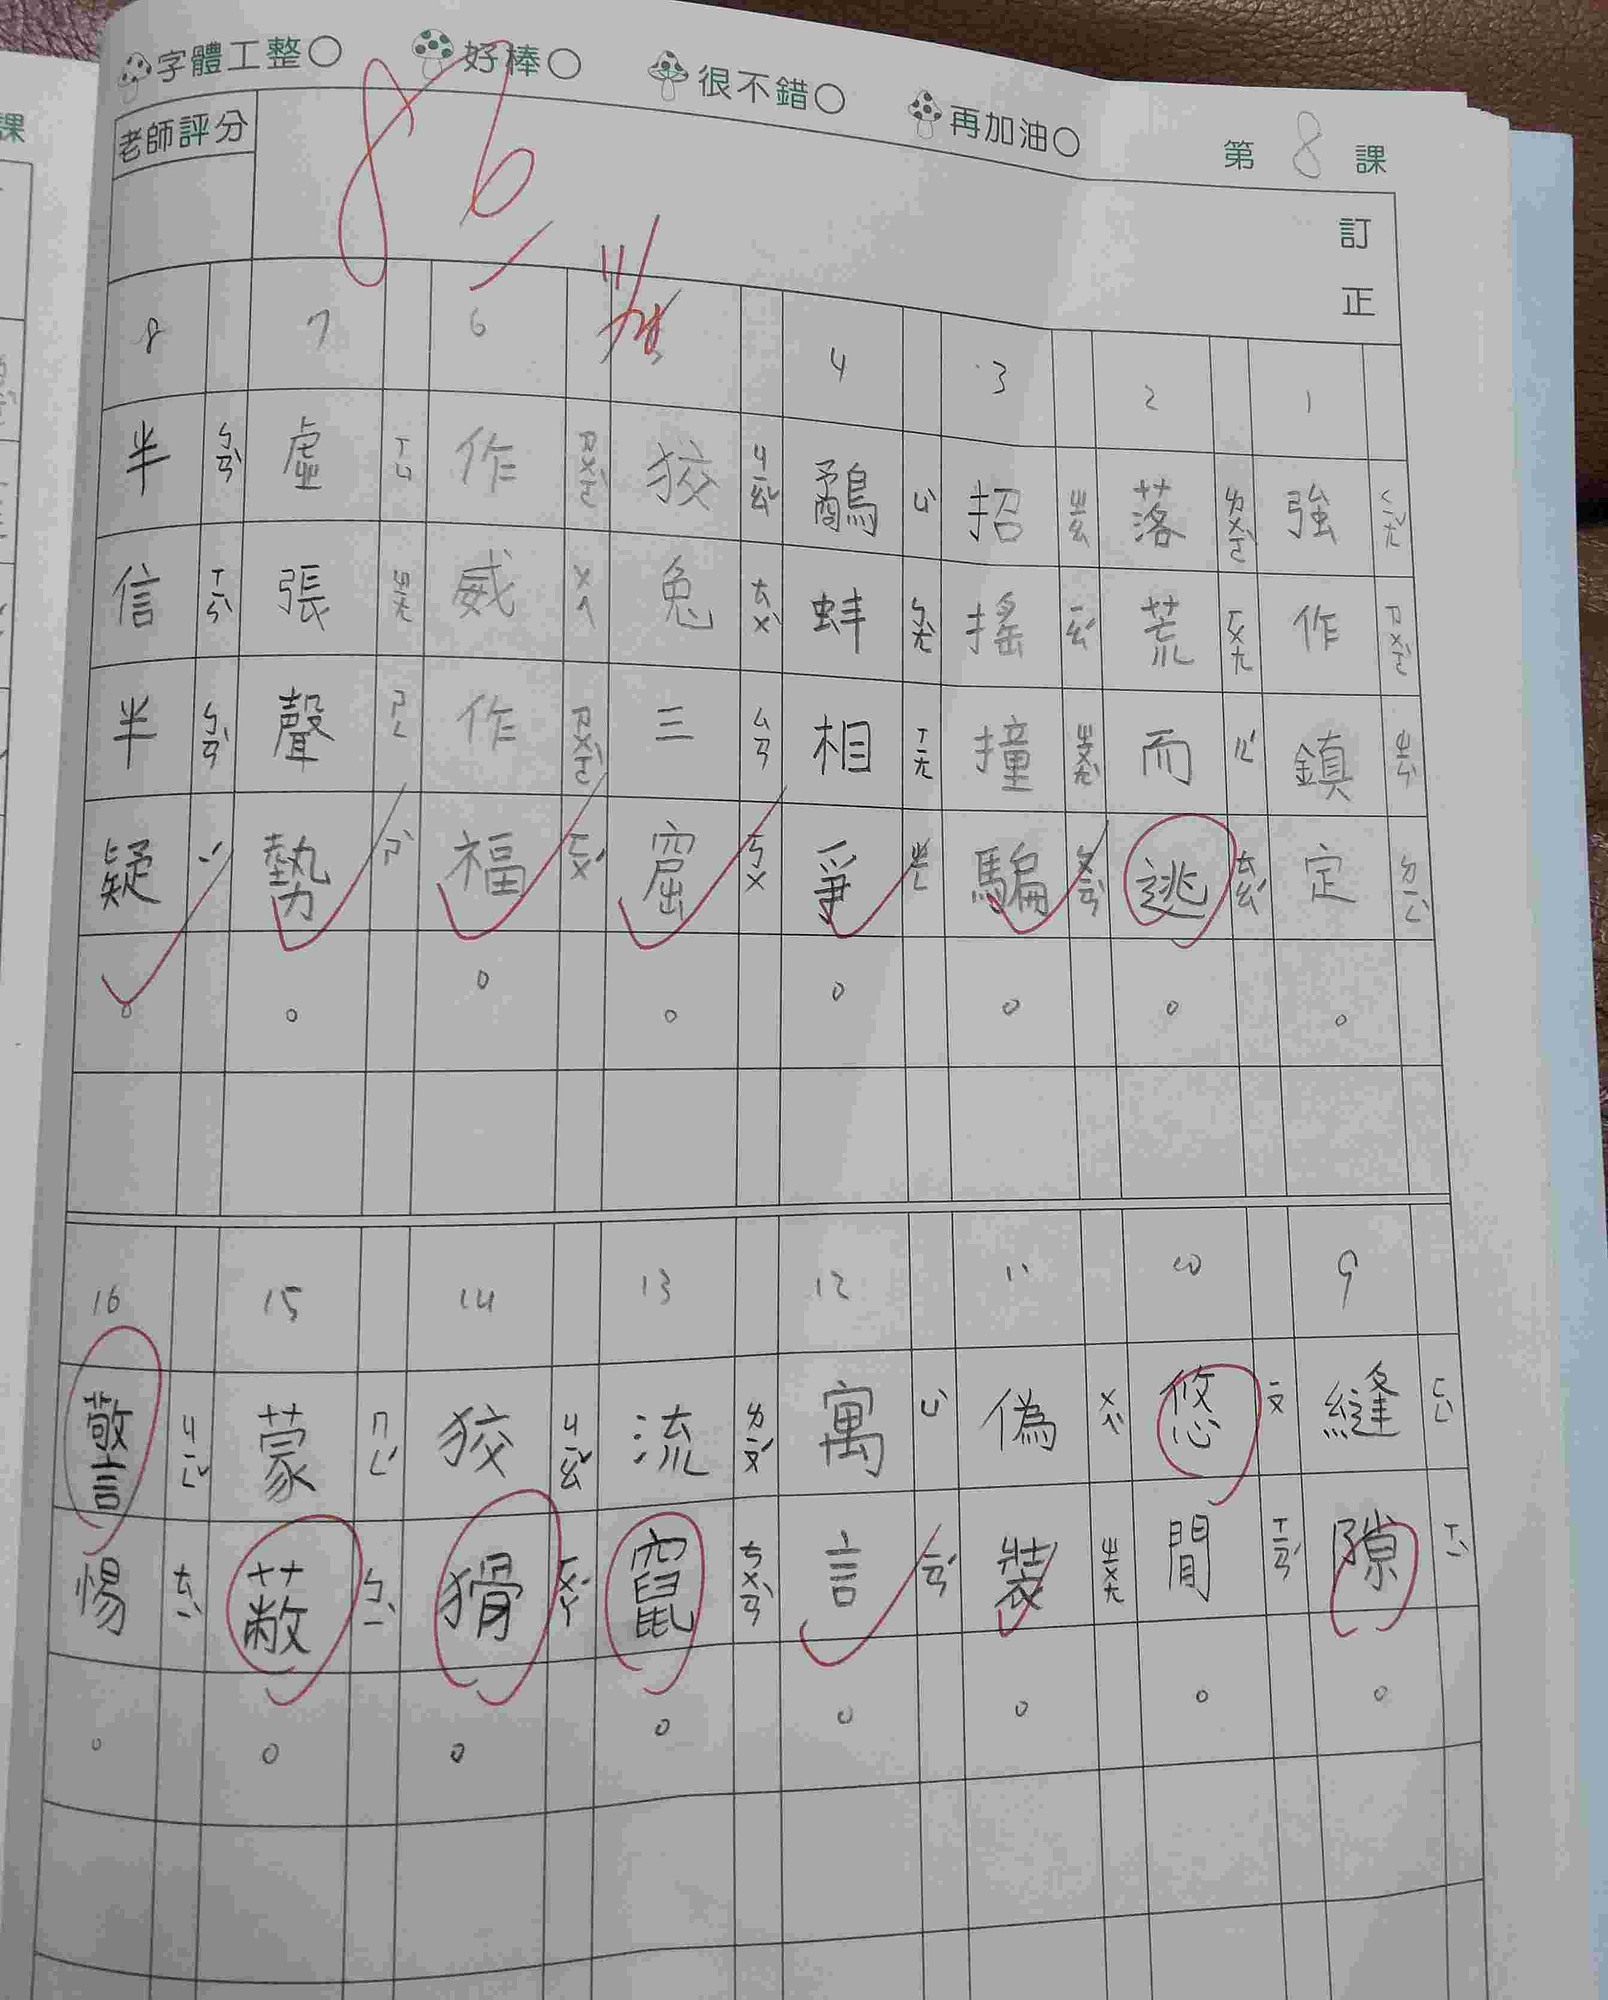 字體工整○ 好棒○ 很不錯○ 再加油○
第8課
老師評分
86
訂正
課
1 強作鎮定。 ㄑㄧㄤˇ ㄗㄨㄛˋ ㄓㄣˋ ㄉㄧㄥˋ
2 落荒而逃。 ㄌㄨㄛˋ ㄏㄨㄤ ㄦˊ ㄊㄠˊ
3 招搖撞騙。 ㄓㄠ ㄧㄠˊ ㄓㄨㄤˋ ㄆㄧㄢˋ
4 鷸蚌相爭。 ㄩˋ ㄅㄤˋ ㄒㄧㄤ ㄓㄥ
狡兔三窟。 ㄐㄧㄠˇ ㄊㄨˋ ㄙㄢ ㄎㄨ
6 作威作福。 ㄗㄨㄛˋ ㄨㄟ ㄗㄨㄛˋ ㄈㄨˊ
7 虛張聲勢。 ㄒㄩ ㄓㄤ ㄕㄥ ㄕˋ
8 半信半疑。 ㄅㄢˋ ㄒㄧㄣˋ ㄅㄢˋ ㄧˊ
9 縫隙。 ㄈㄥˋ ㄒㄧˋ
10 悠閒。 ㄧㄡ ㄒㄧㄢˊ
11 偽裝。 ㄨㄟˋ ㄓㄨㄤ
12 寓言。 ㄩˋ ㄧㄢˊ
13 流竄。 ㄌㄧㄡˊ ㄘㄨㄢˋ
14 狡猾。 ㄐㄧㄠˇ ㄏㄨㄚˊ
15 蒙蔽。 ㄇㄥˊ ㄅㄧˋ
16 警惕。 ㄐㄧㄥˇ ㄊㄧˋ